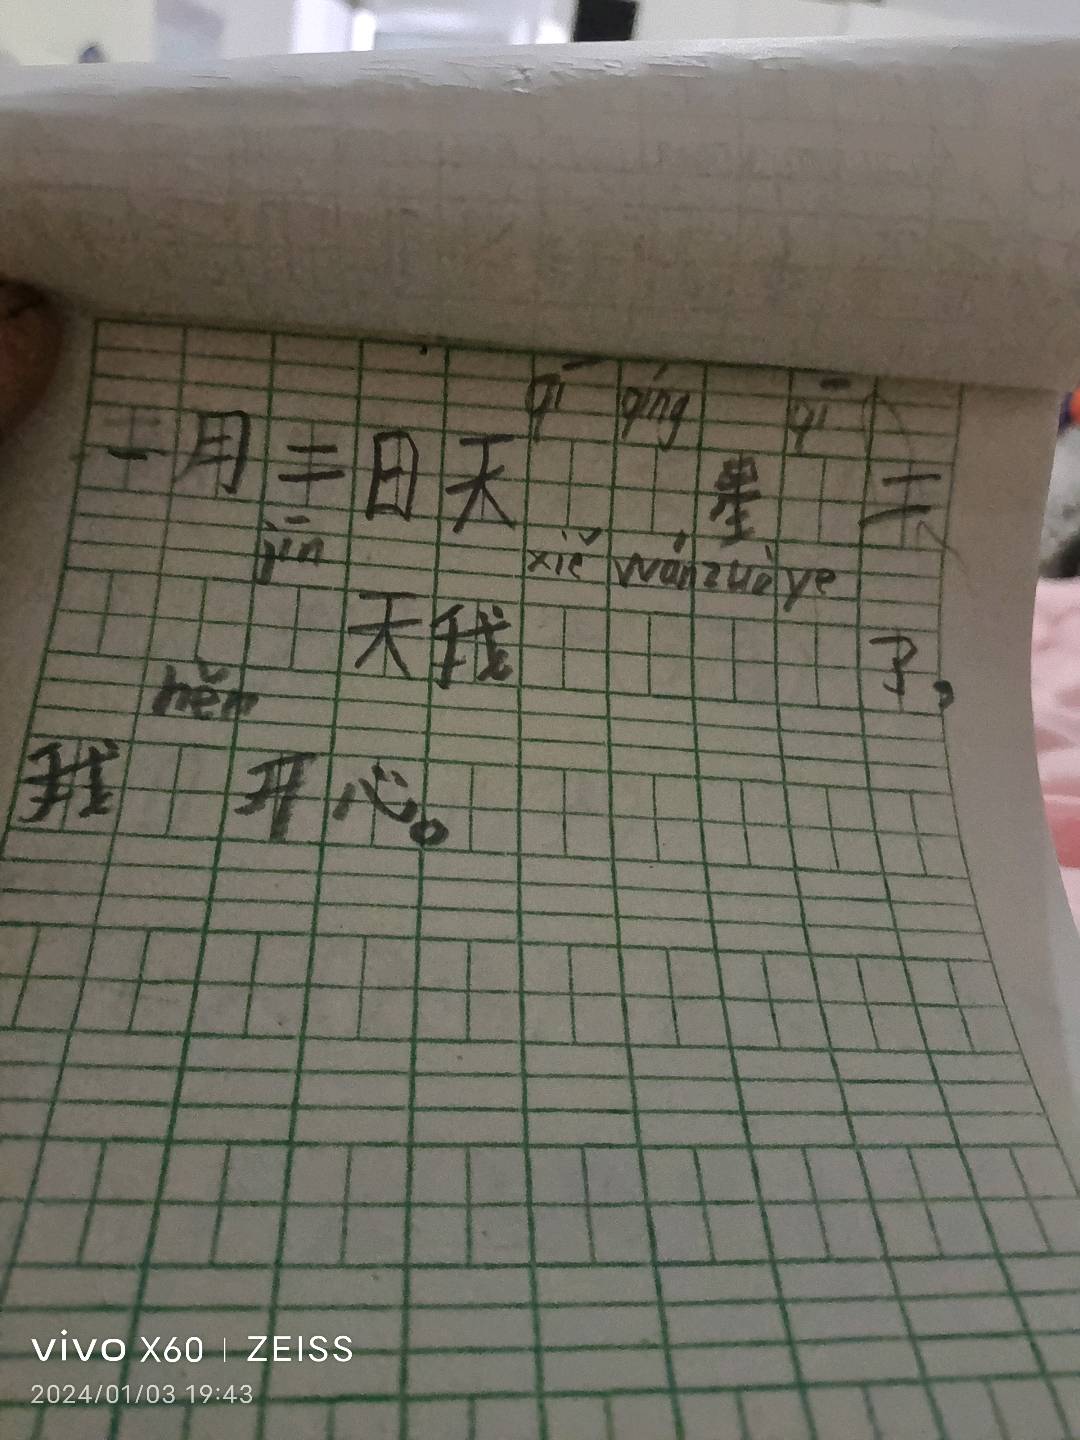 qī qíng qī
一月二日天 星 二
jīn xiě wánzuòye
天我 了,
hěn
我 开心。
vivo X60 | ZEISS
2024/01/03 19:43